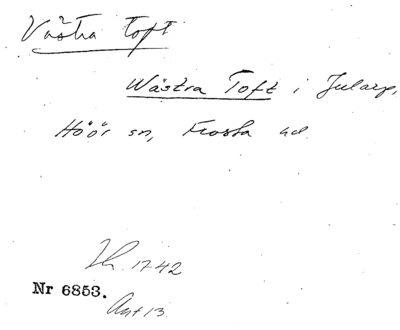 Västra Toft
Wästra Toft i Jularp,
Höör sn, Frosta hd.
Th. 1742
Nr 6853.
Avt 13.